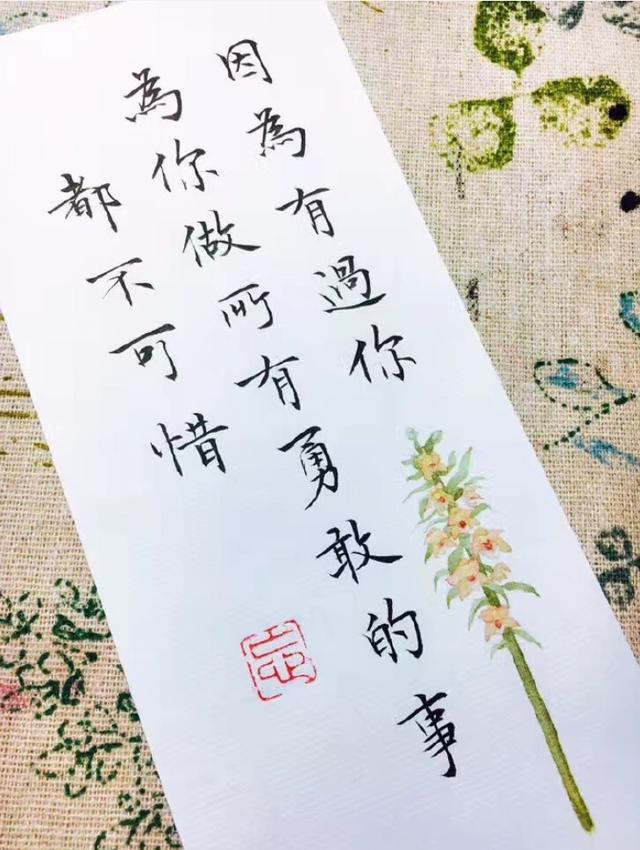 因為有過你
為你做所有勇敢的事
都不可惜